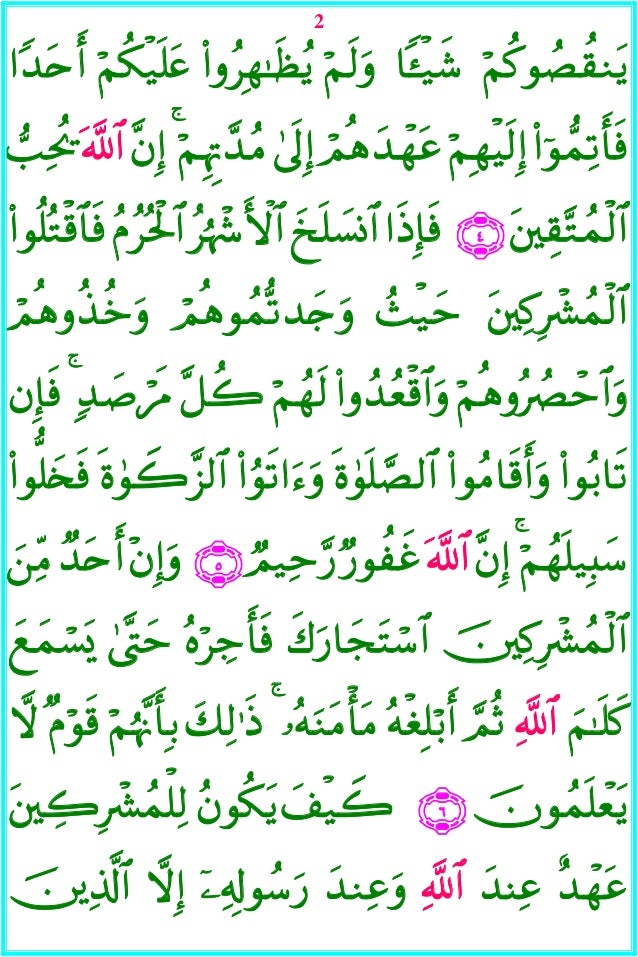 2
يَنقُصُوكُمْ شَيْـًٔا وَلَمْ يُظَـٰهِرُوا۟ عَلَيْكُمْ أَحَدًا
فَأَتِمُّوٓا۟ إِلَيْهِمْ عَهْدَهُمْ إِلَىٰ مُدَّتِهِمْ ۚ إِنَّ ٱللَّهَ يُحِبُّ
ٱلْمُتَّقِينَ ٤ فَإِذَا ٱنسَلَخَ ٱلْأَشْهُرُ ٱلْحُرُمُ فَٱقْتُلُوا۟
ٱلْمُشْرِكِينَ حَيْثُ وَجَدتُّمُوهُمْ وَخُذُوهُمْ
وَٱحْصُرُوهُمْ وَٱقْعُدُوا۟ لَهُمْ كُلَّ مَرْصَدٍ ۚ فَإِن
تَابُوا۟ وَأَقَامُوا۟ ٱلصَّلَوٰةَ وَءَاتَوُا۟ ٱلزَّكَوٰةَ فَخَلُّوا۟
سَبِيلَهُمْ ۚ إِنَّ ٱللَّهَ غَفُورٌ رَّحِيمٌ ٥ وَإِنْ أَحَدٌ مِّنَ
ٱلْمُشْرِكِينَ ٱسْتَجَارَكَ فَأَجِرْهُ حَتَّىٰ يَسْمَعَ
كَلَـٰمَ ٱللَّهِ ثُمَّ أَبْلِغْهُ مَأْمَنَهُۥ ۚ ذَٰلِكَ بِأَنَّهُمْ قَوْمٌ لَّا
يَعْلَمُونَ ٦ كَيْفَ يَكُونُ لِلْمُشْرِكِينَ
عَهْدٌ عِندَ ٱللَّهِ وَعِندَ رَسُولِهِۦٓ إِلَّا ٱلَّذِينَ